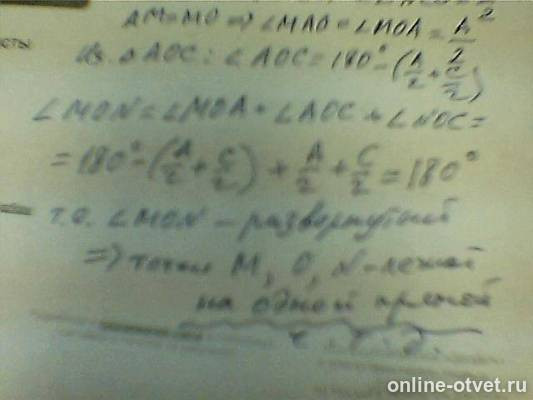 AM=MO => ∠MAO=∠MOA=A/2
Из △AOC: ∠AOC=180°-(A/2+C/2)
∠MON=∠MOA+∠AOC+∠NOC=
=180°-(A/2+C/2)+A/2+C/2=180°
т.о. ∠MON - развернутый
=> точки M, O, N - лежат
на одной прямой
ч.т.д.
online-otvet.ru